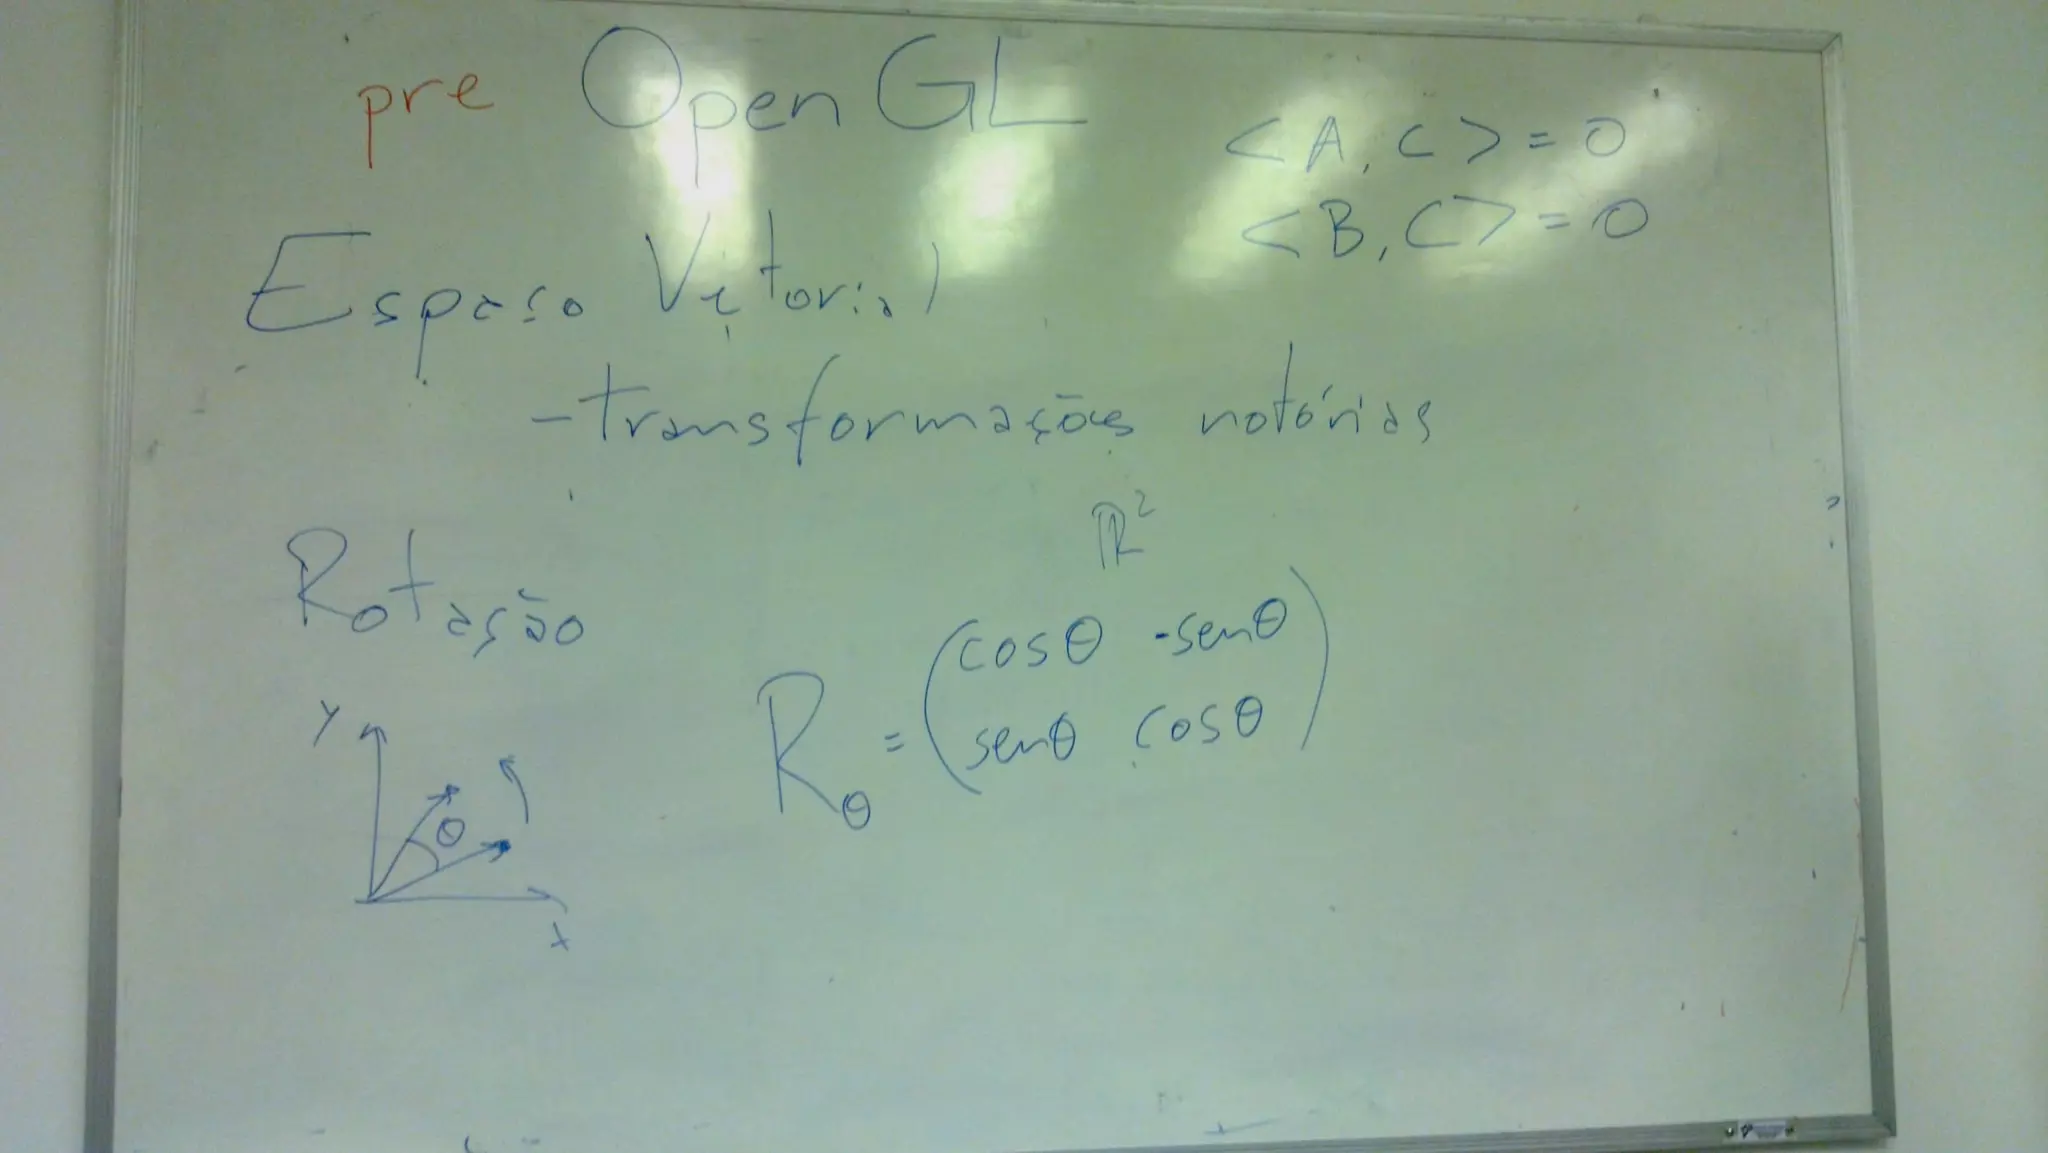 pre OpenGL
<A, C> = 0
<B, C> = 0
Espaço Vetorial
- transformações notórias
Rotação
ℝ²
R_θ = ( cosθ -senθ
senθ cosθ )
Y
θ
X